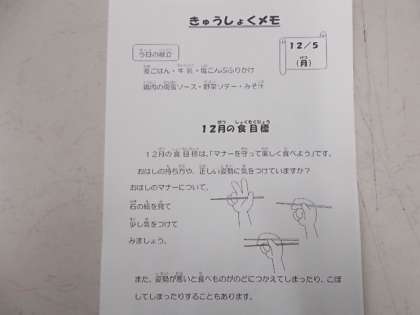 きゅうしょくメモ
12/5
(月)
今日の献立
麦ごはん・牛乳・塩こんぶふりかけ
鶏肉の南蛮ソース・野菜ソテー・みそ汁
12月の食目標
12月の食目標は、「マナーを守って楽しく食べよう」です。
おはしの持ち方や、正しい姿勢に気をつけていますか?
おはしのマナーについて、
右の絵を見て
少し気をつけて
みましょう。
また、姿勢が悪いと食べものがのどにつかえてしまったり、こぼ
してしまったりすることもあります。